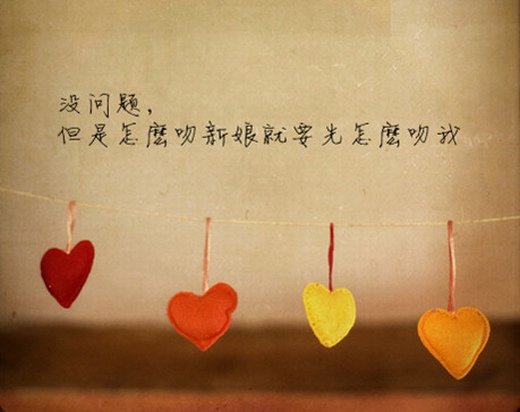 没问题，
但是怎麽吻新娘就要先怎麽吻我